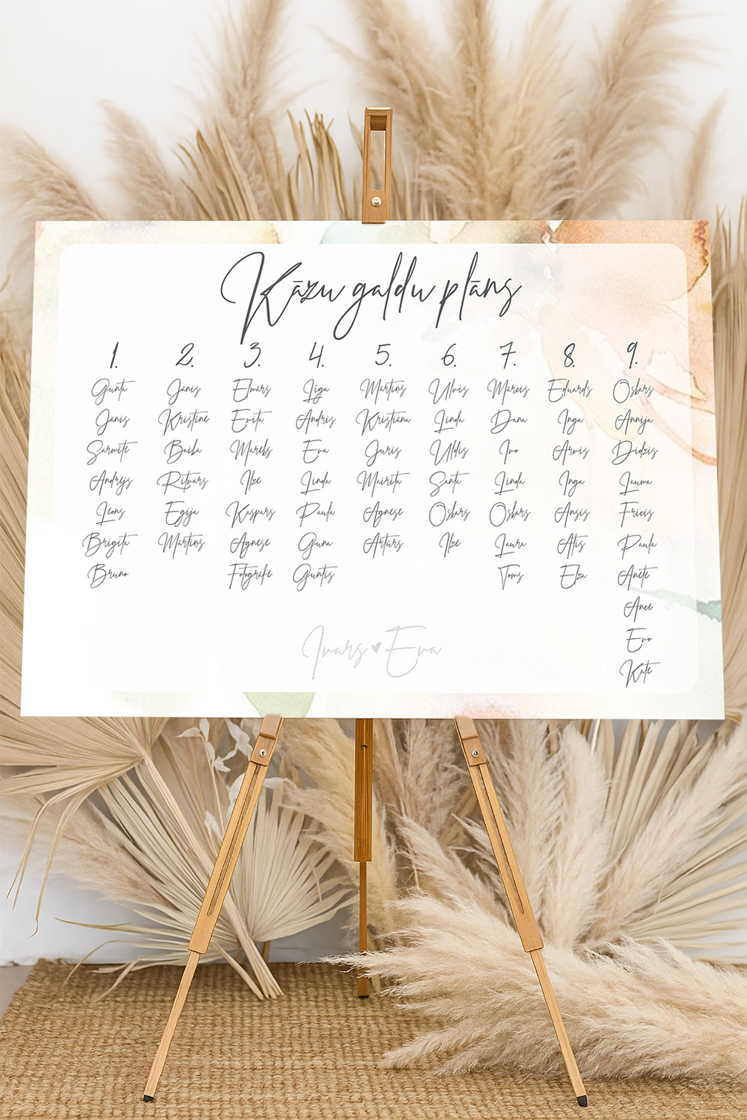 Kāzu galdu plāns
1. 2. 3. 4. 5. 6. 7. 8. 9.
Gunta Janis Elmārs Līga Mārtiņš Ulvis Mārcis Eduards Oskars
Janis Kristīne Evita Andris Kristiana Linda Dana Inga Annija
Sarmīte Baiba Mareks Eva Juris Uldis Ivo Arvis Didzis
Andrejs Ritvars Ilze Linda Mairita Santa Linda Inga Lauma
Leons Egija Kaspars Paula Agnese Oskars Oskars Ansis Fricis
Brigita Mārtiņš Agnese Guna Artūrs Ilze Laura Atis Paula
Bruno Fotogrāfe Guntis Toms Elza Anete
Ance
Evo
Kate
Ivars ♥ Eva